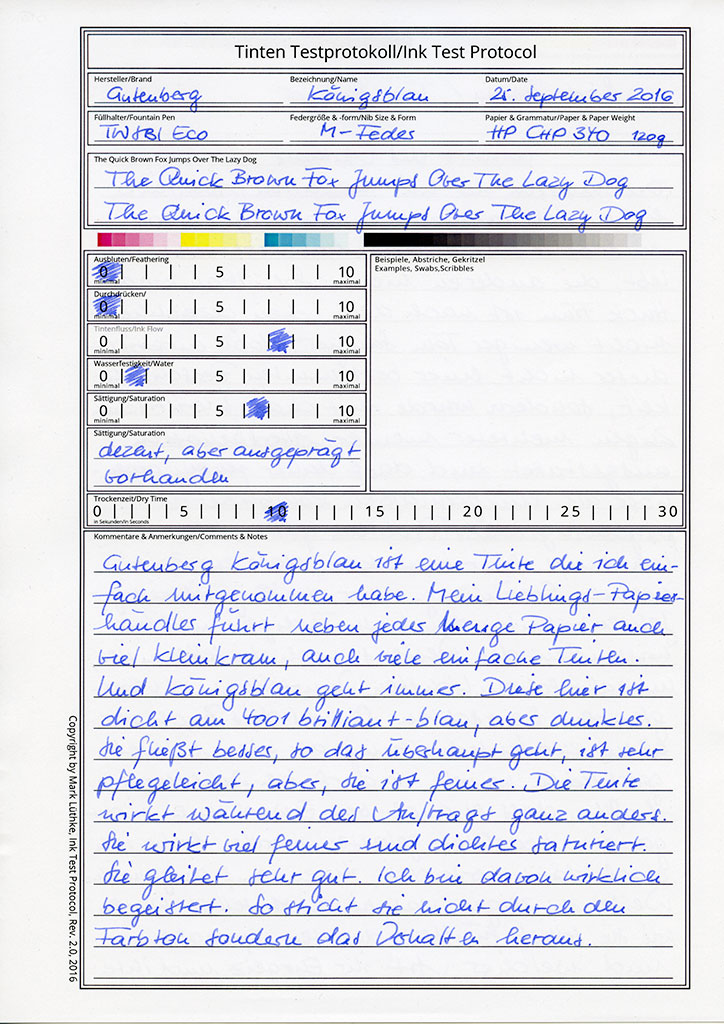 Tinten Testprotokoll/Ink Test Protocol
Hersteller/Brand Bezeichnung/Name Datum/Date
Gutenberg Königsblau 25. September 2016
Füllhalter/Fountain Pen Federgröße & -form/Nib Size & Form Papier & Grammatur/Paper & Paper Weight
TWSBI Eco M-Feder HP CHP 340 120g
The Quick Brown Fox Jumps Over The Lazy Dog
The Quick Brown Fox Jumps Over The Lazy Dog
The Quick Brown Fox Jumps Over The Lazy Dog
Ausbluten/Feathering
0 5 10
minimal maximal
Durchdrücken/
0 5 10
minimal maximal
Tintenfluss/Ink Flow
0 5 10
minimal maximal
Wasserfestigkeit/Water
0 5 10
minimal maximal
Sättigung/Saturation
0 5 10
minimal maximal
Sättigung/Saturation
dezent, aber ausgeprägt
vorhanden
Beispiele, Abstriche, Gekritzel
Examples, Swabs,Scribbles
Trockenzeit/Dry Time
0 5 10 15 20 25 30
in Sekunden/in Seconds
Kommentare & Anmerkungen/Comments & Notes
Gutenberg Königsblau ist eine Tinte die ich ein-
fach mitgenommen habe. Mein Lieblings-Papier-
händler führt neben jeder Menge Papier auch
viel Kleinkram, auch viele einfache Tinten.
Und Königsblau geht immer. Diese hier ist
dicht am 4001 brilliant-blau, aber dunkler.
Sie fließt besser, so das überhaupt geht, ist sehr
pflegeleicht, aber, sie ist feiner. Die Tinte
wirkt während des Auftrags ganz anders.
Sie wirkt viel feiner und dichter saturiert.
Sie gleitet sehr gut. Ich bin davon wirklich
begeistert. So sticht sie nicht durch den
Farbton sondern das Verhalten heraus.
Copyright by Mark Lüthke, Ink Test Protocol, Rev. 2.0, 2016